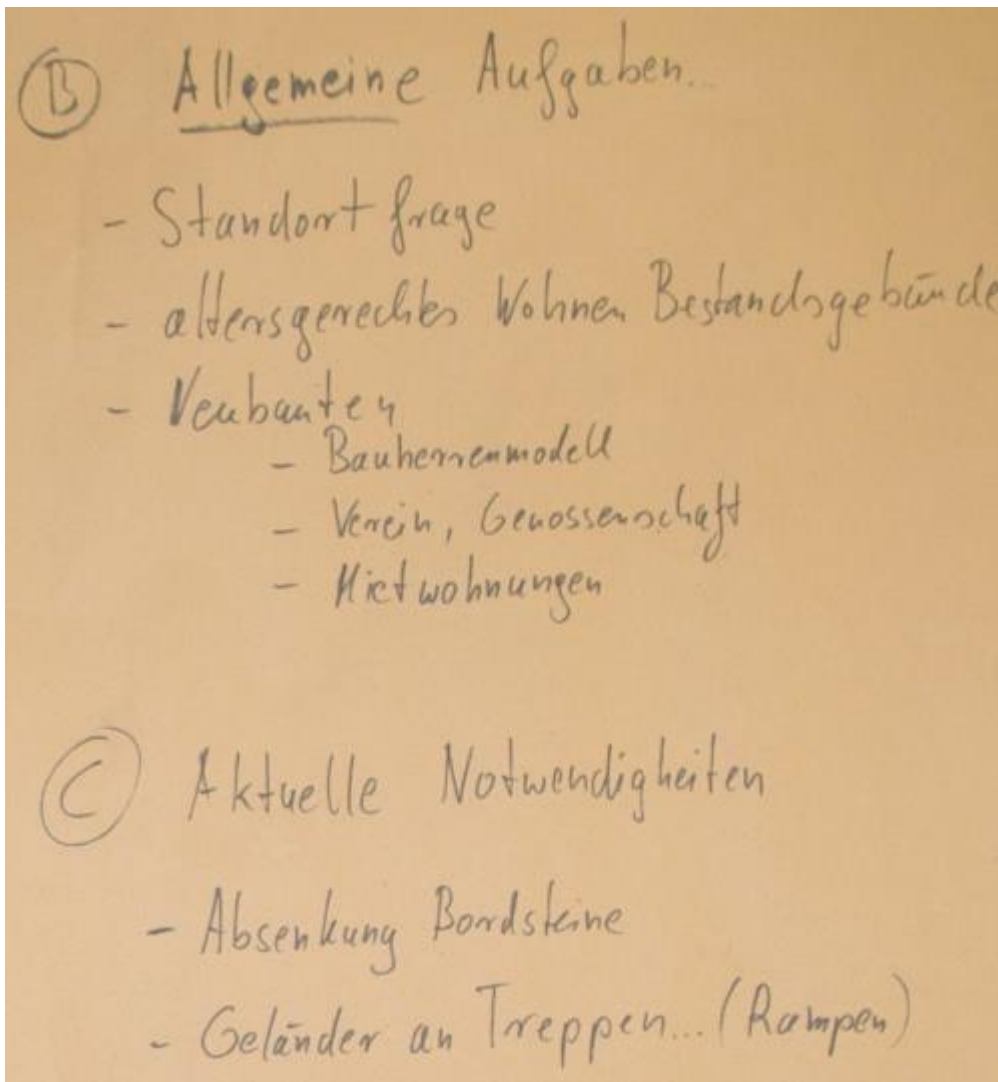 B Allgemeine Aufgaben..
- Standortfrage
- altersgerechtes Wohnen Bestandsgebäude
- Neubauten
- Bauherrenmodell
- Verein, Genossenschaft
- Mietwohnungen
C Aktuelle Notwendigkeiten
- Absenkung Bordsteine
- Geländer an Treppen... (Rampen)